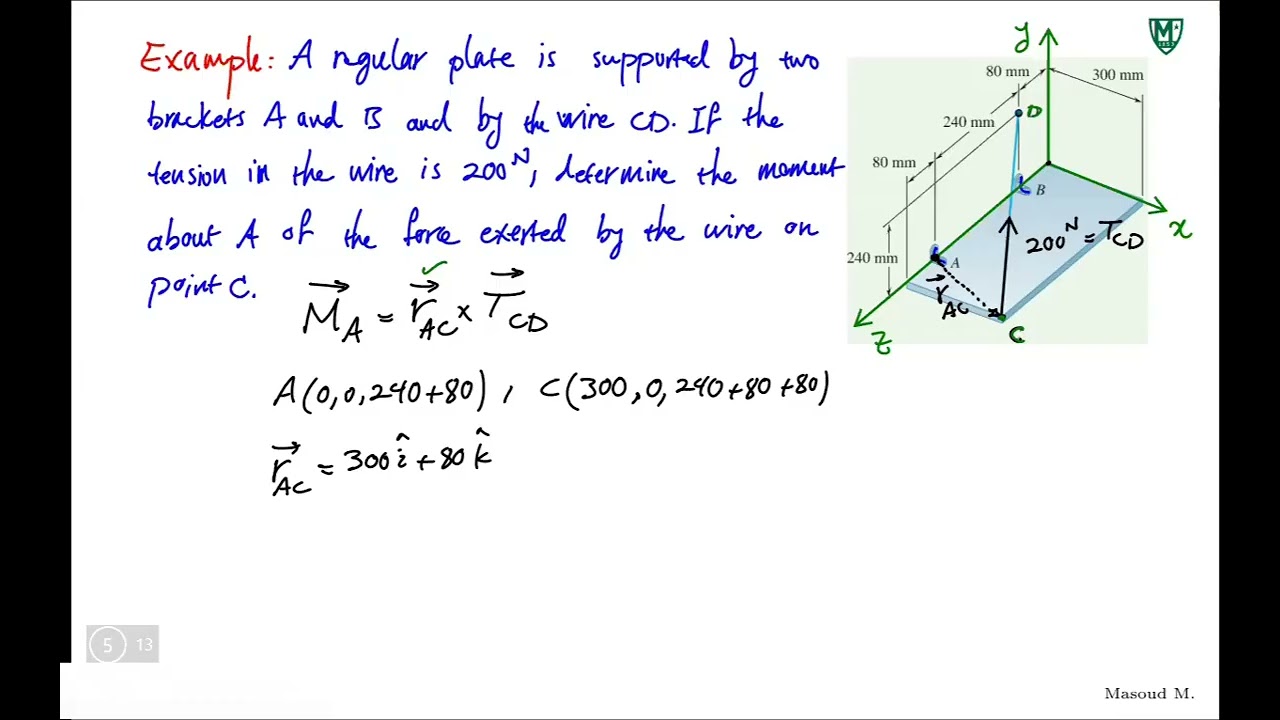 Example: A regular plate is supported by two
brackets A and B and by the wire CD. If the
tension in the wire is 200 N, determine the moment
about A of the force exerted by the wire on
point C.
M⃗_A = r⃗_AC × T⃗_CD
✓
A(0,0,240+80) , C(300,0,240+80+80)
r⃗_AC = 300 î + 80 k̂
y
M
80 mm
300 mm
D
240 mm
80 mm
B
x
200 N = T_CD
240 mm
A
r⃗_AC
z
C
5 13
Masoud M.